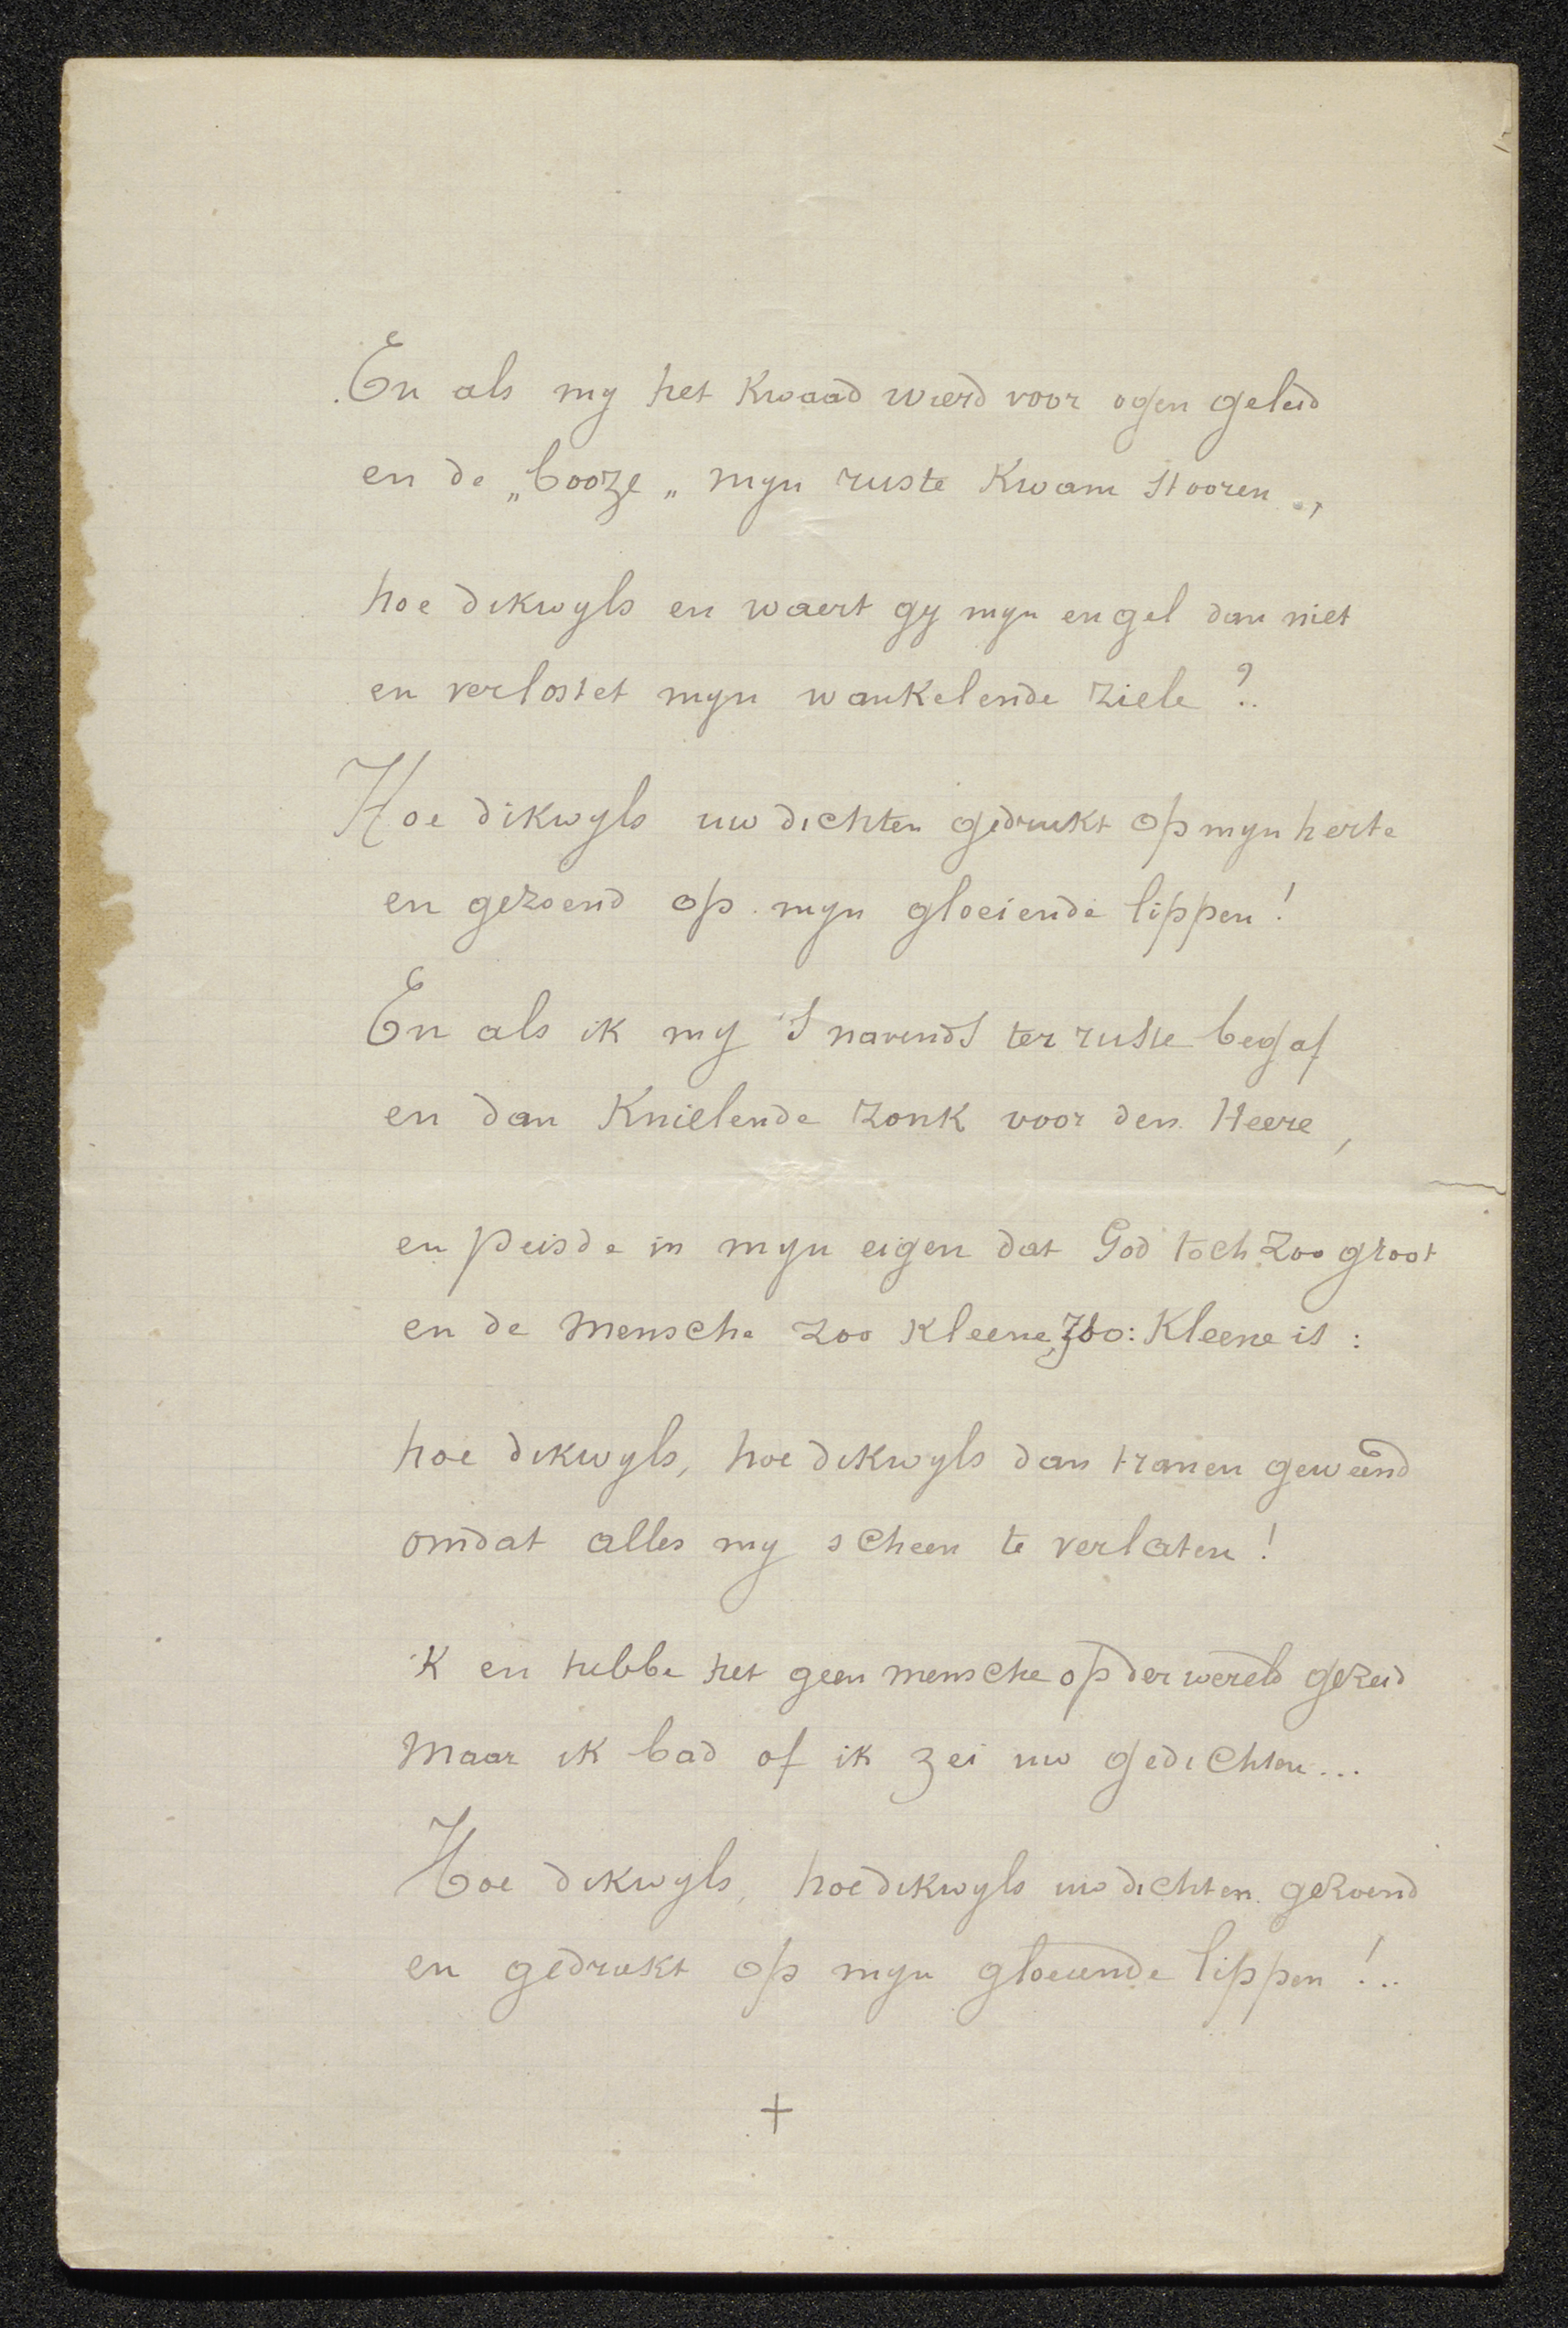 En als my het kwaad wierd voor ogen geleid
en de „booze„ myn ruste kwam stooren.,
hoe dikwyls en waert gy myn engel dan niet
en verlostet myn wankelende ziele ?..
Hoe dikwyls uw dichten gedrukt op myn herte
en gezoend op myn gloeiende lippen !
En als ik my 's navends ter ruste begaf
en dan knielende zonk voor den Heere,
en peisde in myn eigen dat God toch zoo groot
en de mensche zoo kleene, zoo: kleene is :
hoe dikwyls, hoe dikwyls dan tranen geweend
omdat alles my scheen te verlaten !
'K en hebbe het geen mensche op der wereld gezeid
maar ik bad of ik zei uw gedichten...
Hoe dikwyls, hoe dikwyls uw dichten gezoend
en gedrukt op myn gloeiende lippen !..
+